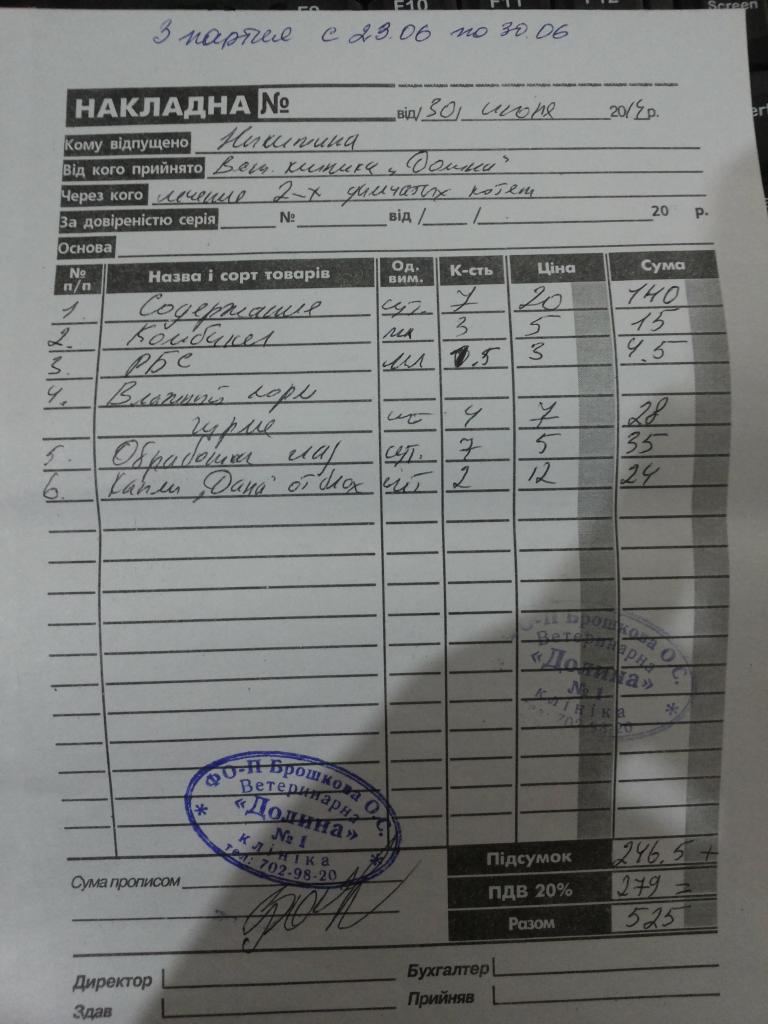 3 партия с 23.06 по 30.06
НАКЛАДНА №
від/30/ июня 2014 р.
Кому відпущено Никитина
Від кого прийнято Вет. клиника „Долина"
Через кого лечение 2-х дымчатых котят
За довіреністю серія № від / / 20 р.
Основа
№ п/п Назва і сорт товарів Од. вим. К-сть Ціна Сума
1. Содержание сут. 7 20 140
2. Комбинел мл 3 5 15
3. РБС мл 1.5 3 4.5
4. Влажный корм
гурме шт 4 7 28
5. Обработка сут. 7 5 35
6. Капли „Dana" от блох шт 2 12 24
ФО-П Брошкова О.С.
Ветеринарна
«Долина»
№ 1
клініка
702-98-20
ФО-П Брошкова О.С.
Ветеринарна
«Долина»
№ 1
клініка
тел: 702-98-20
Підсумок 246.5 +
Сума прописом
ПДВ 20% 279 =
Разом 525
Директор
Бухгалтер
Здав
Прийняв